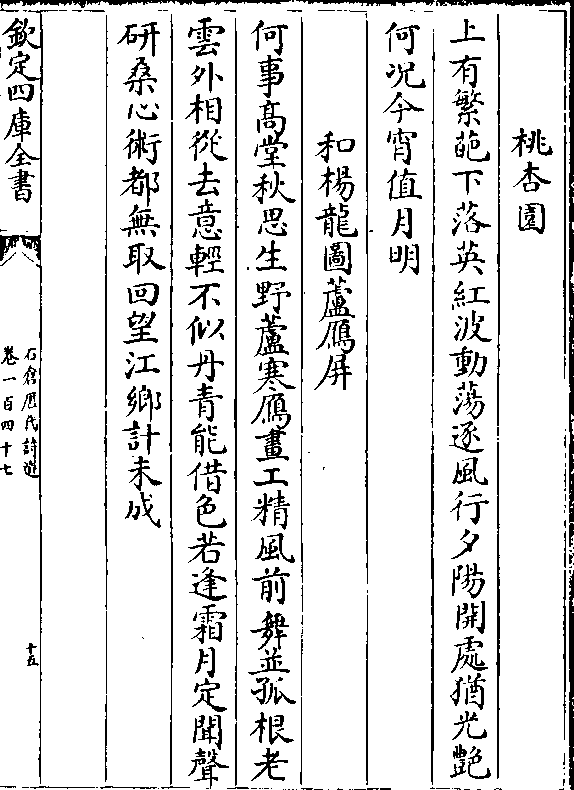 桃杏園
上有繁葩下落英紅波動蕩逐風行夕陽開處猶光艷
何况今宵值月明
和楊龍圖蘆鴈屏
何事高堂秋思生野蘆寒鴈畫工精風前舞並孤根老
雲外相從去意輕不似丹青能借色若逢霜月定聞聲
研桑心術都無取回望江鄉計未成
欽定四庫全書
石倉歷代詩選
卷一百四十七
十五